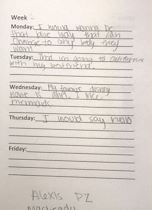 Week -
Monday: I would wanna be
that blue way that can
change to any body they
want
Tuesday: that im going to california
with my best friend.
Wednesday: My favorit disney
have is and I like
mermaids
Thursday: I would say hello
Friday:
Alexis PZ